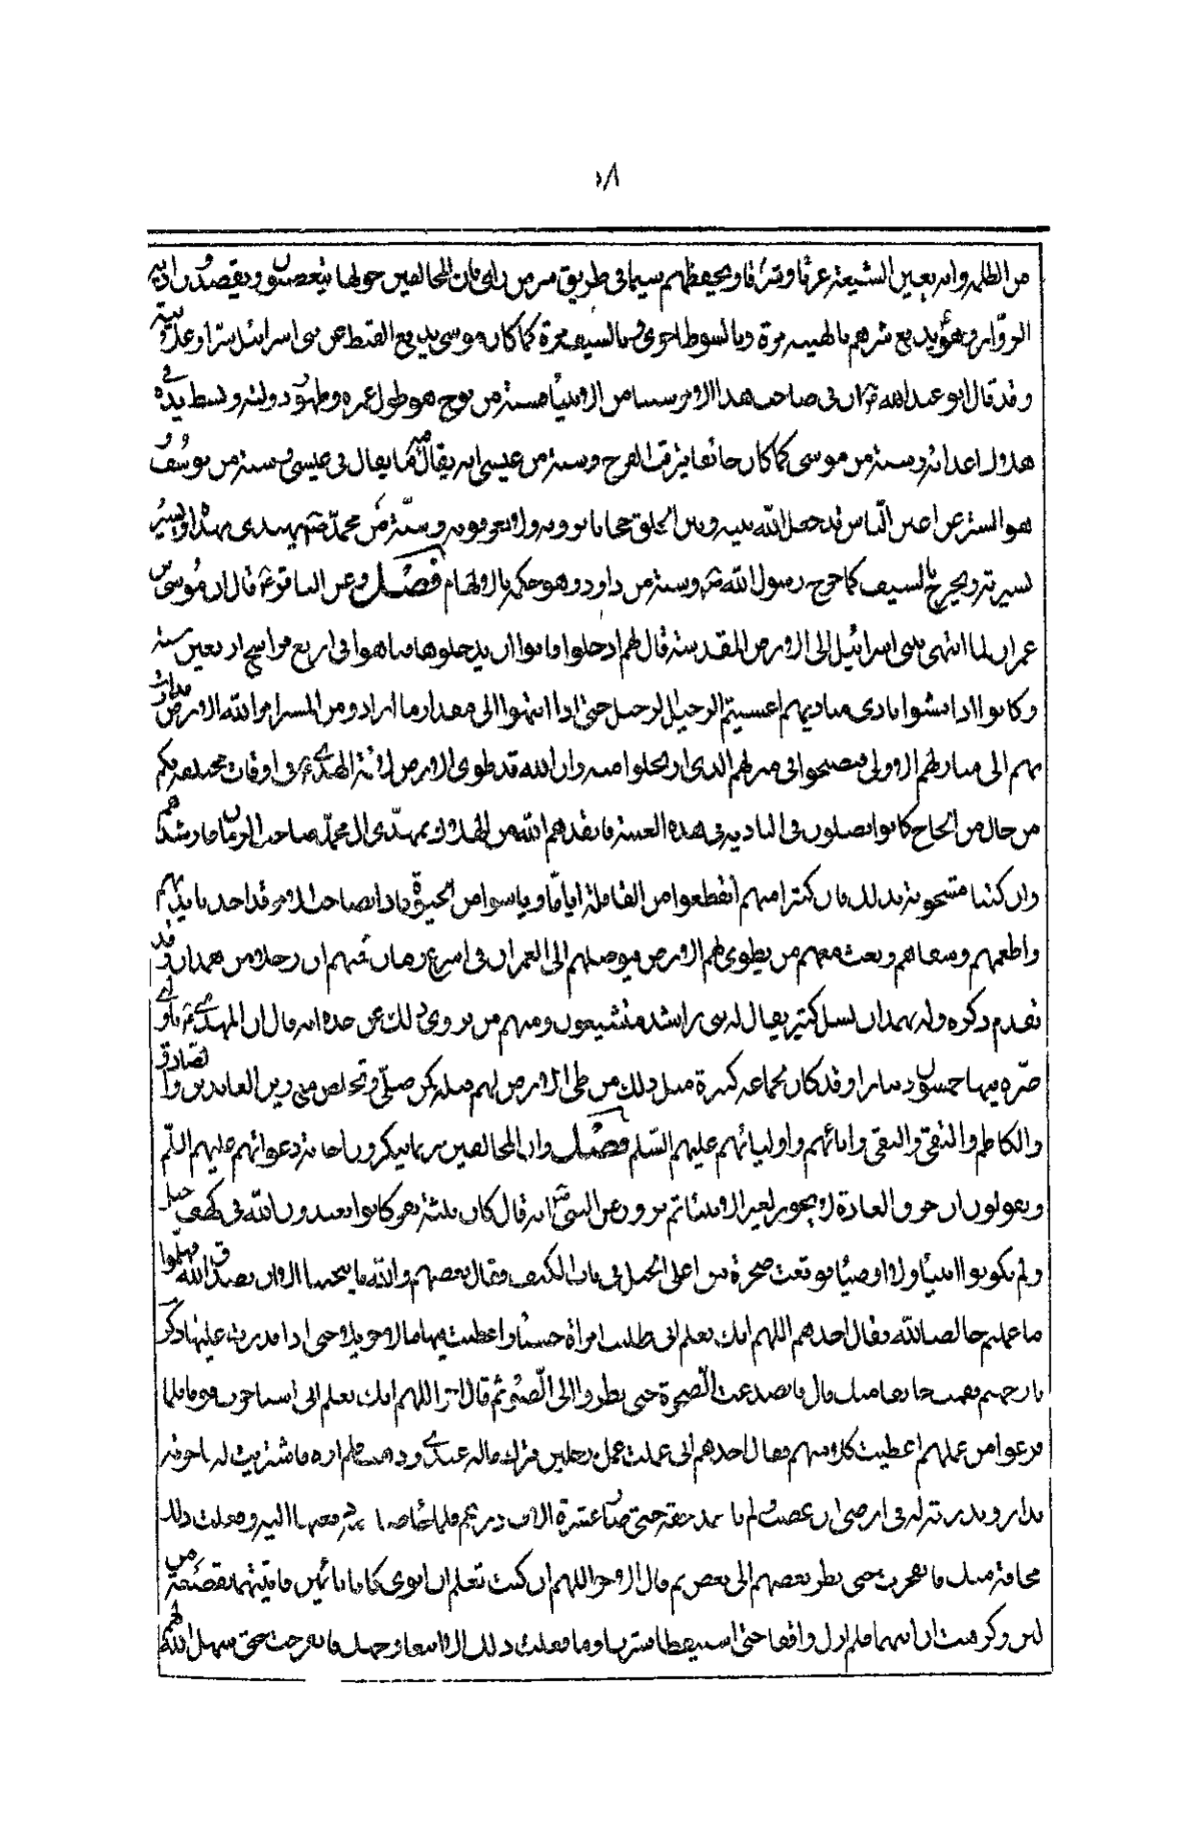 من الظلمة وانه يعين الشيعة عرفا وشرفا ويحفظهم سيما في طريق سر من راى فان المخالفين حولها يتعصبون ويقصدون اذية
الزوار وهو يدفع شرهم بالهيبة مرة وبالسوط اخرى وبالسيف مرة كما كان موسى يدفع القبط عن بنى اسرائيل سرا وعلانية
وقد قال ابو عبد الله ع ان فى صاحب هذا الامر سننا من الانبياء سنة من نوح هو طول عمره وظهور دولته وبسط يده في
هلاك اعدائه وسنة من موسى كما كان خائفا يترقب الفرج وسنة من عيسى انه يقال فيه ما يقال فى عيسى وسنة من يوسف
هو الستر عن اعين الناس قد جعل الله بينه وبين الخلق حجابا يرونه ولا يعرفونه وسنة من محمد ص يهتدى بهداه ويسير
بسيرته ويخرج بالسيف كما خرج رسول الله ص وسنة من داود وهو حكمه بالالهام فصل وعن الباقر ع قال ان موسى بن
عمران لما انتهى ببنى اسرائيل الى الارض المقدسة قال لهم ادخلوا فابوا ان يدخلوها فتاهوا فى اربع فراسخ اربعين سنة
وكانوا اذا امشوا نادى مناديهم امسيتم الرحيل الرحيل حتى اذا انتهوا الى مقدار ما ارادو من المسير امر الله الارض فدارت
بهم الى منازلهم الاولى فيصبحوا فى منزلهم الذى ارتحلوا منه وان الله قد طوى الارض لائمة الهدى ع فى اوقات مختلفة فكم
من حال من الحاج كانوا يضلون فى البادية فى هذه الغيبة فانقذهم الله من الهلاك بمهدى ال محمد صاحب الزمان فارشدهم
وان كتبنا مشحونة بذلك فان كثيرا منهم انقطعوا من القافلة اياما ويئسوا من الحيوة فاذا بصاحب الامر قد اخذ بايديهم
واطعمهم وسقاهم وبعث معهم من يطوى لهم الارض فيوصلهم الى العمران فى اسرع زمان فمنهم ان رجلا من همدان وقد
تقدم ذكره وله بهمدان نسل كثير يقال له بنى راشد متشيعون ومنهم من يروى ذلك عن جده انه قال ان المهدى ع ناولني
صرة فيها خمسون دينارا وقد كان لجماعة كثيرة مثل ذلك من طى الارض لهم قبله كمن صلى وتخلص منى زين العابدين والصادق
والكاظم والتقى والنقى وابائهم واوليائهم عليهم السلم فصل وان المخالفين ربما ينكرون اجابة دعواتهم عليهم السلم
ويقولون ان خرق العادة لا يجوز لغير الانبياء ثم يروون عن النبى ص انه قال كان ثلثة نفر كانوا يعبدون الله فى كهف جبل
ولم يكونوا انبياء ولا اوصياء فوقعت صخرة من اعلى الجبل فى باب الكهف فقال بعضهم والله ما ينجينا الا ان نصدق الله فهلموا
ما عملتم خالصا لله فقال احدهم اللهم انك تعلم انى طلبت امراة حسناء واعطيت فيها مالا جزيلا حتى اذا قدرت عليها ذكرت
نار جهنم فقمت خائفا منك قال فانصدعت الصخرة حتى نظروا الى الضوء ثم قال اخر اللهم انك تعلم انى استاجرت قوما فلما
فرغوا من عملهم اعطيت كلا منهم فقال احدهم انى عملت عمل رجلين فترك ماله عندى وذهب فلم اره فاشتريت له باجرته
بذارا وبذرته له فى ارضى
مخافة منك فانفرجت حتى نظر بعضهم الى بعض ثم قال الاخر اللهم ان كنت تعلم ان ابوى كانا نائمين فاتيتهما بقصعة من
لبن وكرهت ان انبههما فلم ازل واقفا حتى استيقظا فشربا وما فعلت ذلك الا ابتغاء وجهك فانفرجت حتى سهل الله لهم